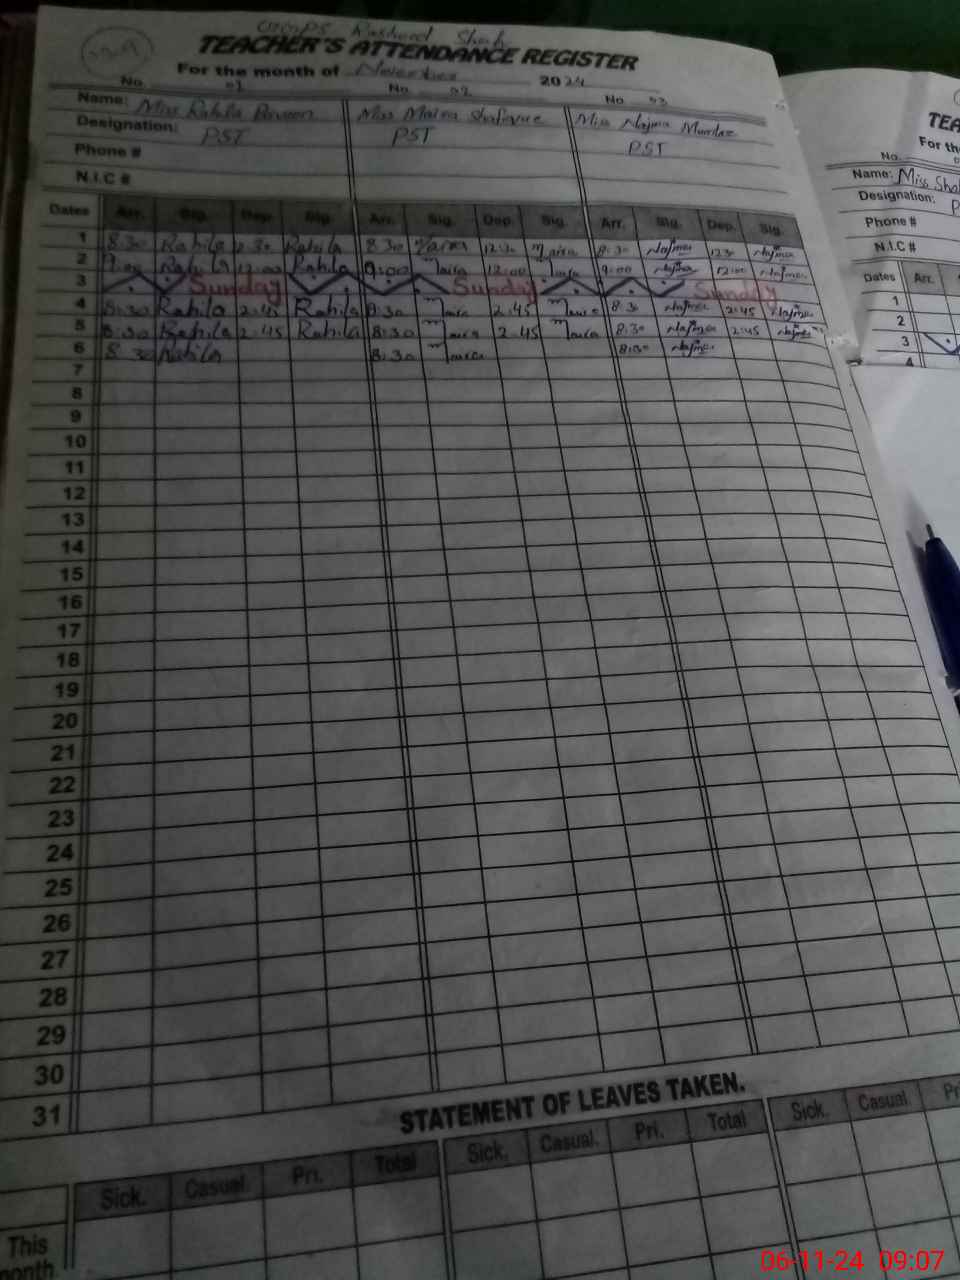 GGMPS Rashand Shah
TEACHER'S ATTENDANCE REGISTER
For the month of November 2024
No. 01 No. 02 No. 03
Name: Miss Rahila Parveen Miss Maira Miss Najma Mumtaz
Designation: PST PST PST
Phone #
N.I.C #
Dates Arr. Sig. Dep. Sig. Arr. Sig. Dep. Sig. Arr. Sig. Dep. Sig.
1 8:30 Rahila 12:30 Rahila 8:30 Maira 12:30 Maira 8:30 Najma 12:30 Najma
2 9:00 Rahila 12:00 Rahila 9:00 Maira 12:00 Maira 9:00 Najma 12:00 Najma
3 Sunday Sunday Sunday
4 8:30 Rahila 2:45 Rahila 8:30 Maira 2:45 Maira 8:30 Najma 2:45 Najma
5 8:30 Rahila 2:45 Rahila 8:30 Maira 2:45 Maira 8:30 Najma 2:45 Najma
6 8:30 Rahila 8:30 Maira 8:30 Najma
7
8
9
10
11
12
13
14
15
16
17
18
19
20
21
22
23
24
25
26
27
28
29
30
31
STATEMENT OF LEAVES TAKEN.
Sick. Casual. Pri. Total Sick. Casual. Pri. Total Sick. Casual
This
month
TEA
For th
No.
Name: Miss Sha
Designation: P
Phone #
N.I.C #
Dates Arr.
1
2
3
4
06-11-24 09:07